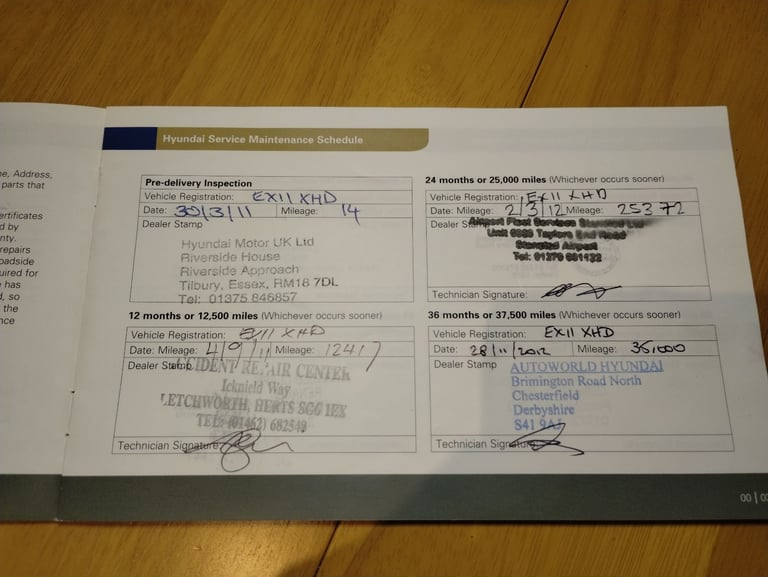 ne, Address,
parts that
ertificates
d by
nty.
repairs
oadside
uired for
e has
d, so
the
nce
Hyundai Service Maintenance Schedule
Pre-delivery Inspection
Vehicle Registration: EX11 XHD
Date: 30/3/11 Mileage: 14
Dealer Stamp
Hyundai Motor UK Ltd
Riverside House
Riverside Approach
Tilbury, Essex, RM18 7DL
Tel: 01375 846857
12 months or 12,500 miles (Whichever occurs sooner)
Vehicle Registration: EX11 XHD
Date: Mileage: 4/9/11 Mileage: 12417
Dealer Stamp
CIDENT REPAIR CENTER
Icknield Way
LETCHWORTH, HERTS SG6 1EX
TEL: (01462) 682549
Technician Signature:
24 months or 25,000 miles (Whichever occurs sooner)
Vehicle Registration: EX11 XHD
Date: Mileage: 2/3/12 Mileage: 25372
Dealer Stamp
Airport Fleet Services Stansted Ltd
Unit Taylors End Road
Stansted Airport
Tel: 01279 681132
Technician Signature:
36 months or 37,500 miles (Whichever occurs sooner)
Vehicle Registration: EX11 XHD
Date: 28/11/2012 Mileage: 35,000
Dealer Stamp
AUTOWORLD HYUNDAI
Brimington Road North
Chesterfield
Derbyshire
S41 9AJ
Technician Signature:
00 | 0